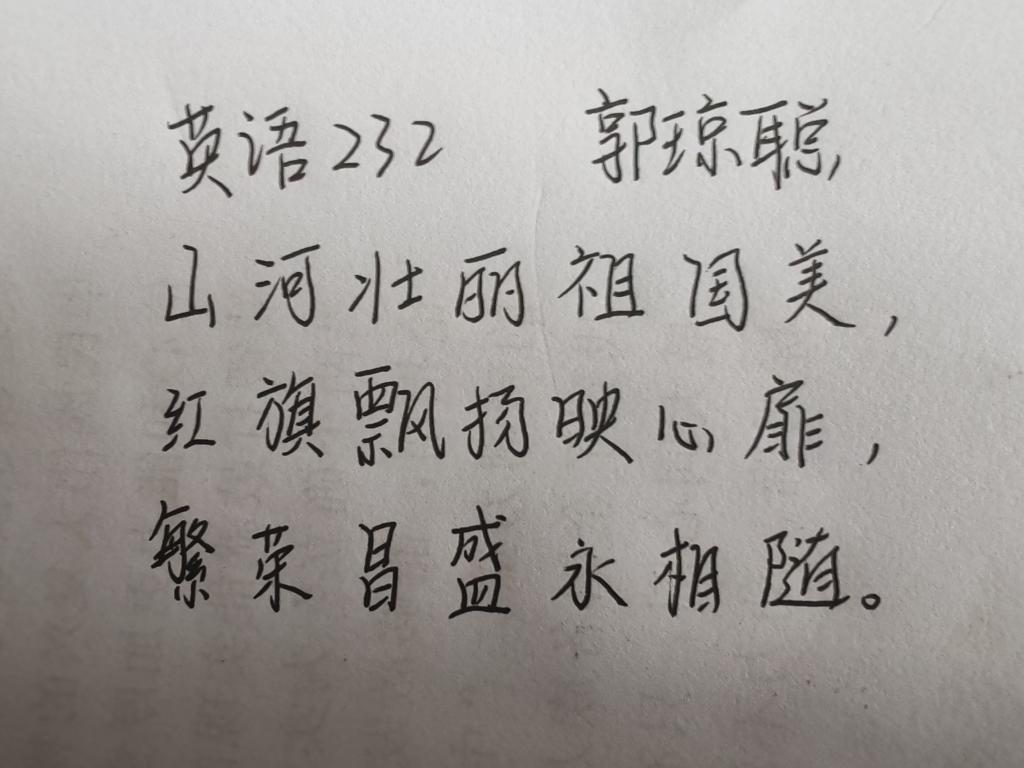 英语232 郭琼聪
山河壮丽祖国美，
红旗飘扬映心扉，
繁荣昌盛永相随。